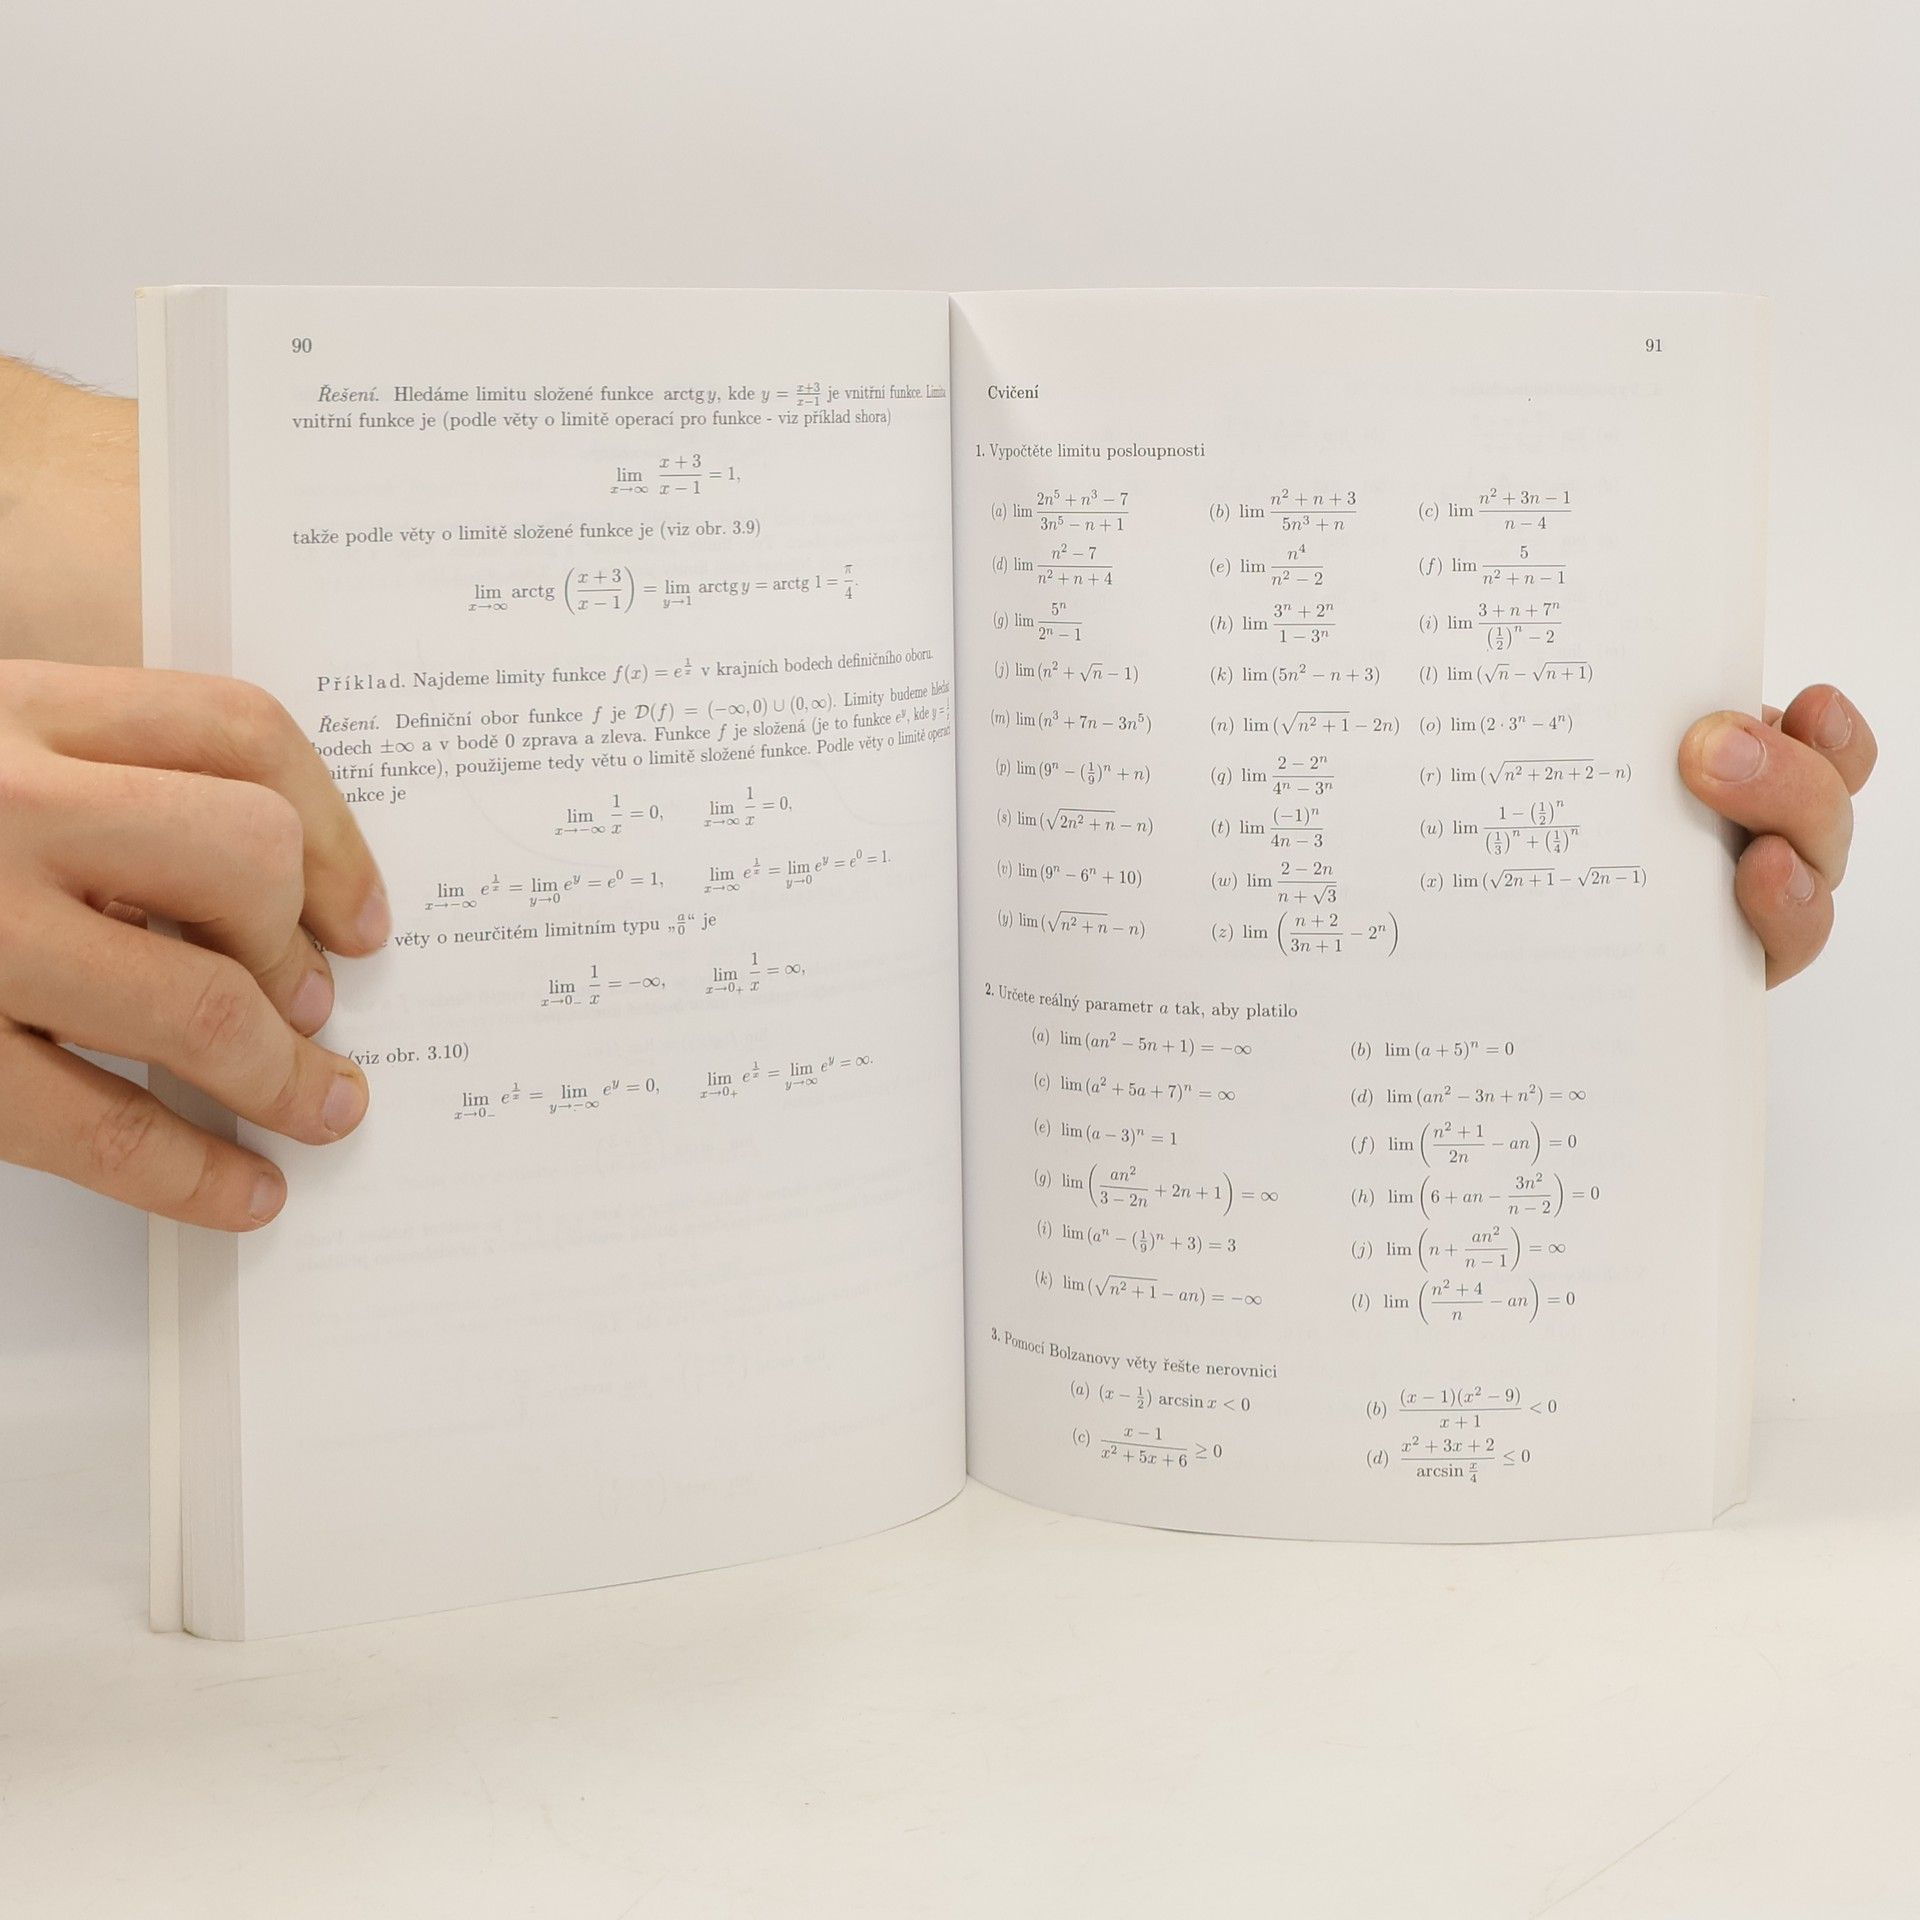 90
Řešení. Hledáme limitu složené funkce arctg y, kde y = \frac{x+3}{x-1} je vnitřní funkce. Limita
vnitřní funkce je (podle věty o limitě operací pro funkce - viz příklad shora)
\lim_{x→∞} \frac{x+3}{x-1} = 1,
takže podle věty o limitě složené funkce je (viz obr. 3.9)
\lim_{x→∞} arctg (\frac{x+3}{x-1}) = \lim_{y→1} arctg y = arctg 1 = \frac{π}{4}.
Příklad. Najdeme limity funkce f(x) = e^{\frac{1}{x}} v krajních bodech definičního oboru.
Řešení. Definiční obor funkce f je D(f) = (−∞, 0) ∪ (0, ∞). Limity budeme
bodech ±∞ a v bodě 0 zprava a zleva. Funkce f je složená (je to funkce e^y, kde y =
funkce), použijeme tedy větu o limitě složené funkce. Podle věty o limitě
je
\lim_{x→−∞} \frac{1}{x} = 0, \lim_{x→∞} \frac{1}{x} = 0,
\lim_{x→−∞} e^{\frac{1}{x}} = \lim_{y→0} e^y = e^0 = 1, \lim_{x→∞} e^{\frac{1}{x}} = \lim_{y→0} e^y = e^0 = 1.
věty o neurčitém limitním typu „\frac{a}{0}“ je
\lim_{x→0_−} \frac{1}{x} = −∞, \lim_{x→0_+} \frac{1}{x} = ∞,
(viz obr. 3.10)
\lim_{x→0_−} e^{\frac{1}{x}} = \lim_{y→−∞} e^y = 0, \lim_{x→0_+} e^{\frac{1}{x}} = \lim_{y→∞} e^y = ∞.
91
Cvičení
1. Vypočtěte limitu posloupnosti
(a) lim \frac{2n^5 + n^3 − 7}{3n^5 − n + 1} (b) lim \frac{n^2 + n + 3}{5n^3 + n} (c) lim \frac{n^2 + 3n − 1}{n − 4}
(d) lim \frac{n^2 − 7}{n^2 + n + 4} (e) lim \frac{n^4}{n^2 − 2} (f) lim \frac{5}{n^2 + n − 1}
(g) lim \frac{5^n}{2^n − 1} (h) lim \frac{3^n + 2^n}{1 − 3^n} (i) lim \frac{3 + n + 7^n}{(\frac{1}{2})^n − 2}
(j) lim (n^2 + √n − 1) (k) lim (5n^2 − n + 3) (l) lim (√n − \sqrt{n + 1})
(m) lim (n^3 + 7n − 3n^5) (n) lim (\sqrt{n^2 + 1} − 2n) (o) lim (2 · 3^n − 4^n)
(p) lim (9^n − (\frac{1}{9})^n + n) (q) lim \frac{2 − 2^n}{4^n − 3^n} (r) lim (\sqrt{n^2 + 2n + 2} − n)
(s) lim (\sqrt{2n^2 + n} − n) (t) lim \frac{(−1)^n}{4n − 3} (u) lim \frac{1 − (\frac{1}{2})^n}{(\frac{1}{3})^n + (\frac{1}{4})^n}
(v) lim (9^n − 6^n + 10) (w) lim \frac{2 − 2n}{n + √3} (x) lim (\sqrt{2n + 1} − \sqrt{2n − 1})
(y) lim (\sqrt{n^2 + n} − n) (z) lim (\frac{n + 2}{3n + 1} − 2^n)
2. Určete reálný parametr a tak, aby platilo
(a) lim (an^2 − 5n + 1) = −∞ (b) lim (a + 5)^n = 0
(c) lim (a^2 + 5a + 7)^n = ∞ (d) lim (an^2 − 3n + n^2) = ∞
(e) lim (a − 3)^n = 1 (f) lim (\frac{n^2 + 1}{2n} − an) = 0
(g) lim (\frac{an^2}{3 − 2n} + 2n + 1) = ∞ (h) lim (6 + an − \frac{3n^2}{n − 2}) = 0
(i) lim (a^n − (\frac{1}{9})^n + 3) = 3 (j) lim (n + \frac{an^2}{n − 1}) = ∞
(k) lim (\sqrt{n^2 + 1} − an) = −∞ (l) lim (\frac{n^2 + 4}{n} − an) = 0
3. Pomocí Bolzanovy věty řešte nerovnici
(a) (x − \frac{1}{2}) arcsin x < 0 (b) \frac{(x − 1)(x^2 − 9)}{x + 1} < 0
(c) \frac{x − 1}{x^2 + 5x + 6} ≥ 0 (d) \frac{x^2 + 3x + 2}{arcsin \frac{x}{4}} ≤ 0